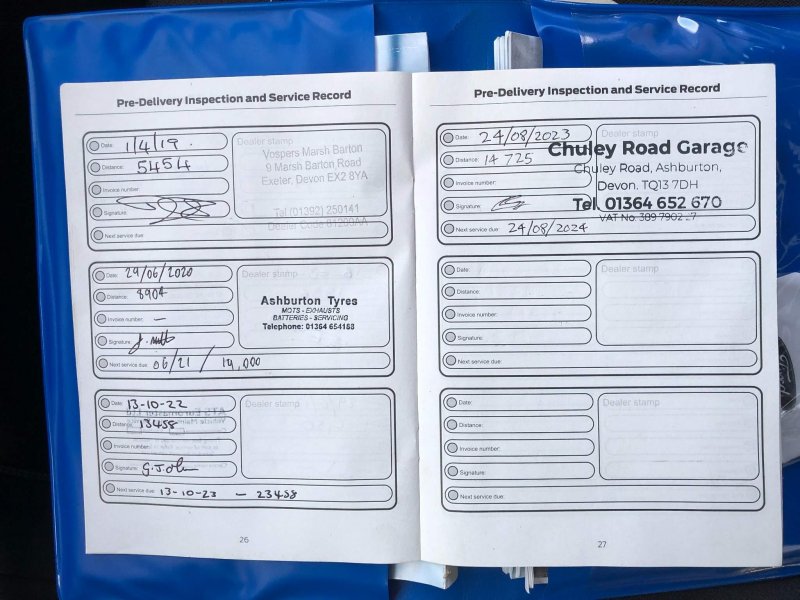 Pre-Delivery Inspection and Service Record
Date: 1/4/19.
Distance: 5454
Invoice number:
Signature:
Next service due:
Dealer stamp
Vospers Marsh Barton
9 Marsh Barton Road
Exeter, Devon EX2 8YA
Tel (01392) 250141
Dealer Code
Date: 29/06/2020
Distance: 8904
Invoice number: –
Signature:
Next service due: 06/21 / 19,000
Dealer stamp
Ashburton Tyres
MOTS - EXHAUSTS
BATTERIES - SERVICING
Telephone: 01364 654188
Date: 13-10-22
Distance: 13458
Invoice number:
Signature: G. John
Next service due: 13-10-23 – 23458
Dealer stamp
ATS Euromaster Ltd
26
Pre-Delivery Inspection and Service Record
Date: 24/08/2023
Distance: 14 725
Invoice number:
Signature:
Next service due: 24/08/2024
Dealer stamp
Chuley Road Garage
Chuley Road, Ashburton,
Devon. TQ13 7DH
Tel. 01364 652 670
VAT No. 389 7902
Date:
Distance:
Invoice number:
Signature:
Next service due:
Dealer stamp
Date:
Distance:
Invoice number:
Signature:
Next service due:
Dealer stamp
27